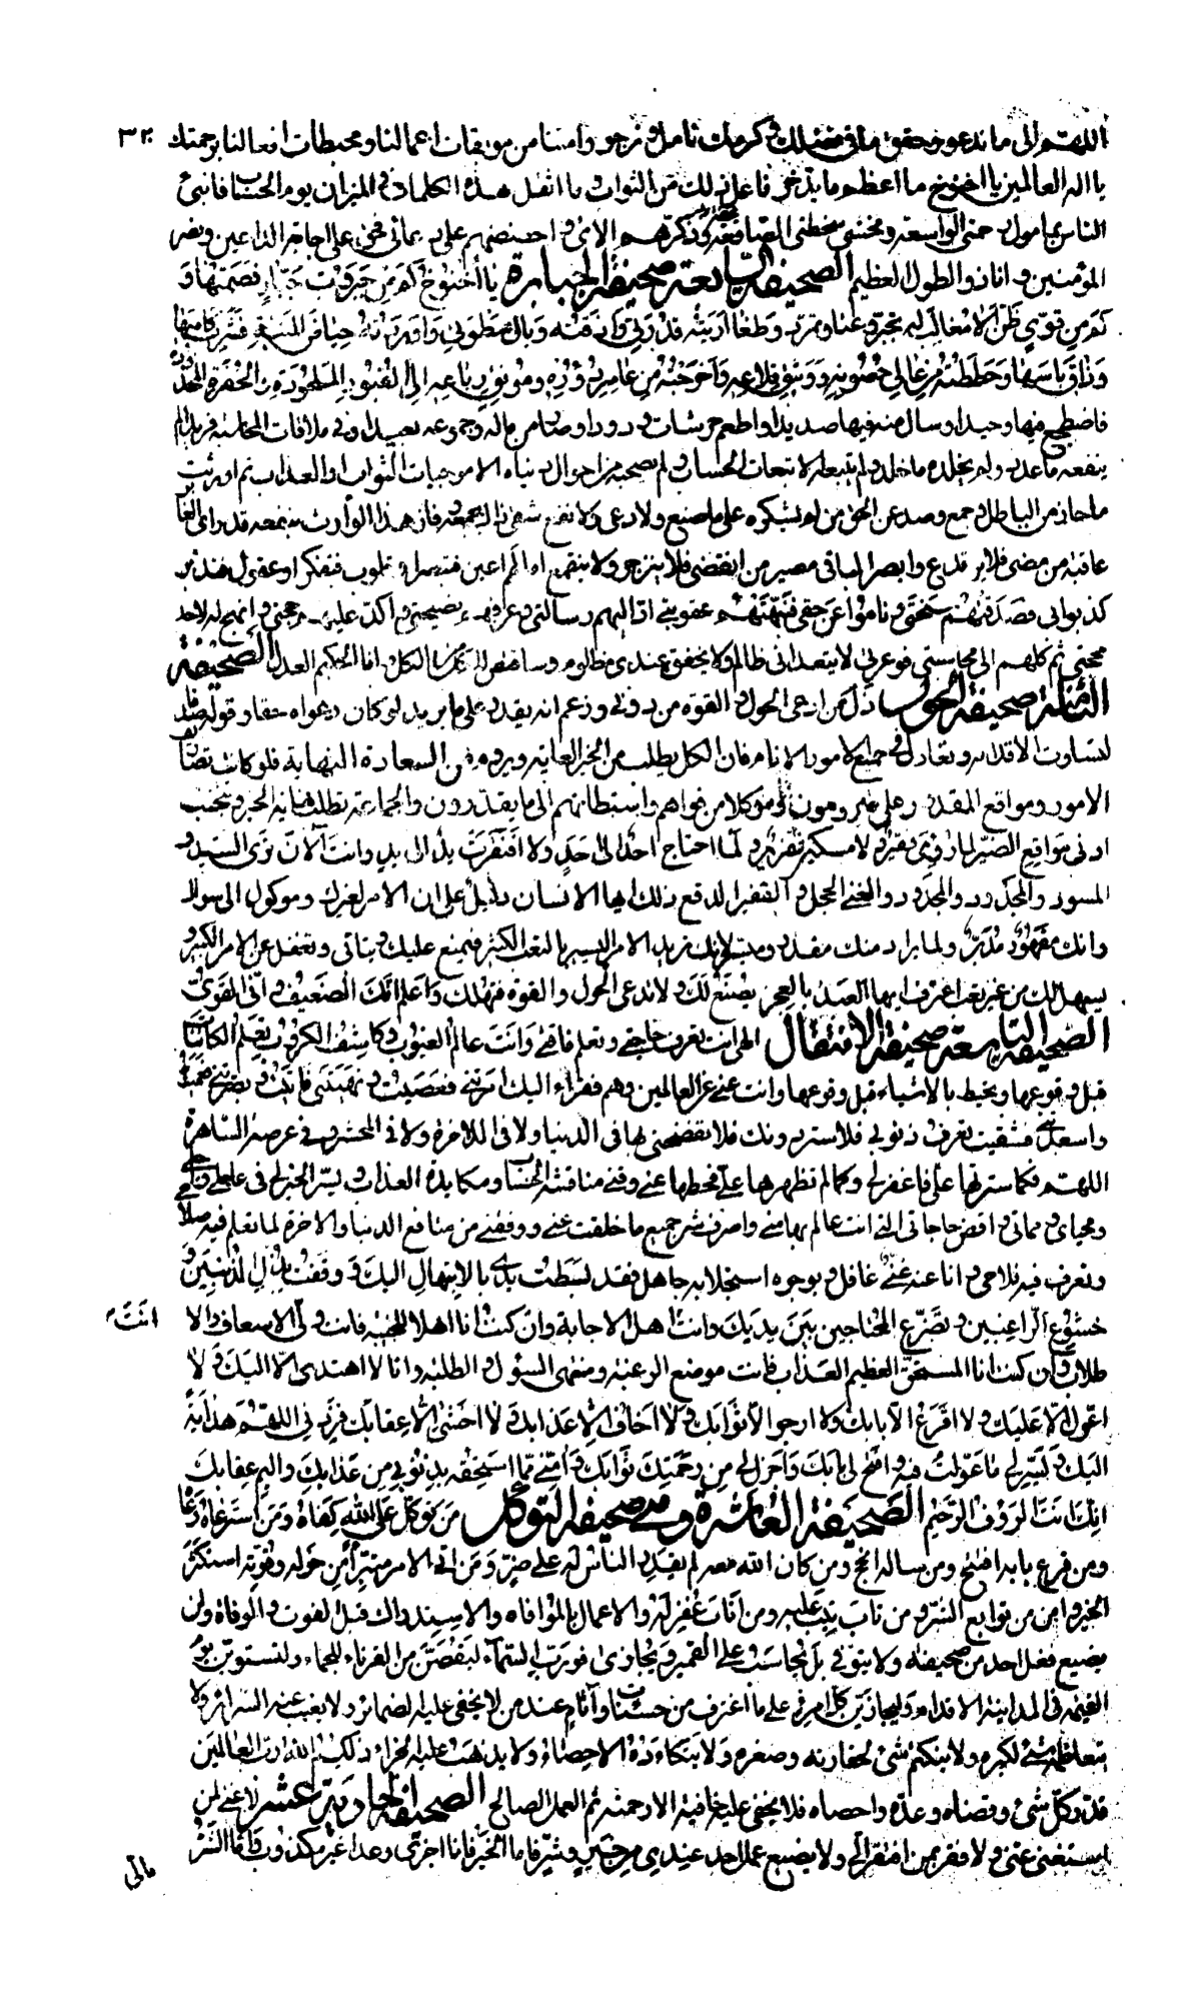 اللهم الى ما ندعو وحقق ما في فضلك وكرمك نامل ونرجو وامنا من موبقات اعمالنا ومحبطات افعالنا برحمتك ٣٢٠
يا اله العالمين يا اخنوخ ما اعظم ما يدخر فاعل ذلك من الثواب وما اثقل هذه الكلمات في الميزان يوم الحساب فانبئ
الناس بمامول رحمتي الواسعة ومخشي سخطي وذكرهم
المؤمنين وانا ذو الطول العظيم الصحيفة السابعة صحيفة الجبابرة يا اخنوخ كم من جبروت جبار قصمتها و
كم من قوي ظن الا مغالب له فتجبر وعتا وتمرد وطغا اريته قدرتي واذقته وبال سطوتي واوردته حياض المنية فشرب كاسها
وذاق باسها وحططته من عالي حصونه ووثيق قلاعه واخرجته من عامر دوره ومونق رباعه الى القبور الملحودة والحفر المخدودة
فاضطجع فيها وحيدا وسال منه فيها صديدا واطعم حرشات ودودا
ينفعه ما عدد ولم يخلده ما خلد ولم يتبعه الا تبعات الحساب ولم يصحبه من احوال دنياه الا موجبات الثواب او العذاب ثم اورثت
ما حاز من الباطل وجمع وصد عن الحق من لم يشكره على ما صنع ولا دعى له ولا نفع
عاقبة من مضى فلا يرتدع وابصر الباقي مصير من انقضى فلا ينزجر ولا ينقمع اما لهم اعين فتبصر او قلوب فتفكر او عقول فتدبر
كذبوا بي فصدقتهم سخطي وناموا عن حقي فنبهتهم عقوبتي اد اليهم رسالتي وعرفهم نصيحتي واكد عليهم حجتي وانهج لهم لاحب
محجتي ثم كلهم الى محاسبتي فوعزتي لا يتعداني ظالم ولا يخفق عندي مظلوم وساقتص للكل من الكل وانا الحكم العدل الصحيفة
الثامنة صحيفة الحول ذل من ادعى الحول والقوة من دوني وزعم انه يقدر على ما يريد لو كان دعواه حقا وقوله صدقا
لتساوت الاقدام وتعادل في جميع الامور الانام فان الكل يطلب من الخير الغاية ويروم من السعادة النهاية فلو كانت تصاريف
الامور ومواقع المقدور على ما يرومون وموكلا من قواهم واستطاعتهم الى ما يقدرون والجماعة تطلب نهاية الخير وتجتنب
ادنى مواقع الضير لما رؤي فقير ولا مسكين ضرير ولما احتاج احد الى احد ولا افتقرت يد الى يد وانت الان ترى السيد و
المسود والمجدود والمحدود والغني الخجل والفقير المدقع ذلك ايها الانسان دليل على ان الامر لغيرك وموكول الى سواك
وانك مقهور مدبر ولما يراد منك مقدر وميسر لانك تريد الامر اليسير بالتعب الكثير فيمتنع عليك ويتاتى وتغفل عن الامر الكبير و
يسهل لك من غير تعب اعترف ايها العبد بالعجز يصنع لك ولا تدعي الحول والقوة فتهلك واعلم انك الضعيف واني القوي
الصحيفة التاسعة صحيفة الانتقال الهي انت تعرف حاجتي وتعلم فاقتي وانت عالم الغيوب وكاشف الكروب تعلم الكائنات
قبل وقوعها وتحيط بالاشياء قبل وقوعها وانت غني عن العالمين وهم فقراء اليك امرتني فعصيت ونهيتني فابيت وبصرتني فعميت
واسعدتني فشقيت تعرف ذنوبي فلا ستر دونك فلا تفضحني بها في الدنيا ولا في الاخرة ولا في المحشر وفي عرصة الساهرة
اللهم فكما سترتها علي فاغفر لي وكما لم تظهرها علي فحطها عني وقني مناقشة الحساب ومكابدة العذاب ويسر الخير لي في عاجلي واجلي
ومحياي ومماتي واقض حاجاتي التي انت عالم بها مني واصرف شر جميع ما خلقت عني ووفقني من منافع الدنيا والاخرة لما تعلم فيه صلاحي
وتعرف فيه فلاحي وانا عنه غافل وبوجوه استجلابه جاهل فقد بسطت يدي بالابتهال اليك ووقفت بذل المذنبين و
خشوع الراغبين وتضرع المحتاجين بين يديك وانت اهل الاجابة وان كنت انا اهلا للخيبة فانت ولي الاسعاف والا انت
طلاب وان كنت انا المستحق العظيم العذاب فانت موضع الرغبة ومنتهى السؤل والطلبة وانا لا اهتدي الا اليك ولا
اعول الا عليك ولا اقرع الا بابك ولا ارجو الا ثوابك ولا اخاف الا عذابك ولا اخشى الا عقابك فزدني اللهم هداية
اليك ويسر لي ما عولت فيه وافتح لي بابك واجزل لي من رحمتك ثوابك وامني مما استحقه بذنوبي من عذابك واليم عقابك
انك انت الرؤف الرحيم الصحيفة العاشرة وهي صحيفة التوكل من توكل على الله كفاه ومن استرعاه رعاه
ومن قرع بابه افتتح ومن ساله انجح ومن كان الله معه لم يقدر الناس له على ضر ومن اتى الامر متبرأ من حوله وقوته استكثر
الخير وامن من توابع الشر ومن تاب تيب عليه ومن اناب غفر له والاعمال بالموافاة والاستدراك قبل الفوت والوفاة ولن
يضيع فعل احد من صحيفته ولا يتوفى بل يحاسب على القمير ويجازى فورب السماء ليقتصن من القرناء للجماء وليستوفين
القيمة في المداينة الاقدام وليجازين كل امرئ على ما اقترف من حسنات واثام عند من لا يخفى عليه الضمائر ولا يغيب عنه السرائر ولا
يتعاظمه شئ لكبره ولا ينكتم شئ لحقارته وصغره ولا يتكاءده الاحصاء ولا يذهب عليه الجزاء ذلكم الله رب العالمين
قدر كل شئ وقضاه وعده واحصاه فلا يخفى عليه خافية الا رحمته ثم العمل الصالح الصحيفة الحادية عشر لا غنى لمن
استغنى عني ولا فقر بمن افتقر الي ولا يضيع عمل احد عندي من خير وشر فاما الخير فانا اجزي وعدا غير مكذوب واما الشر
فالى